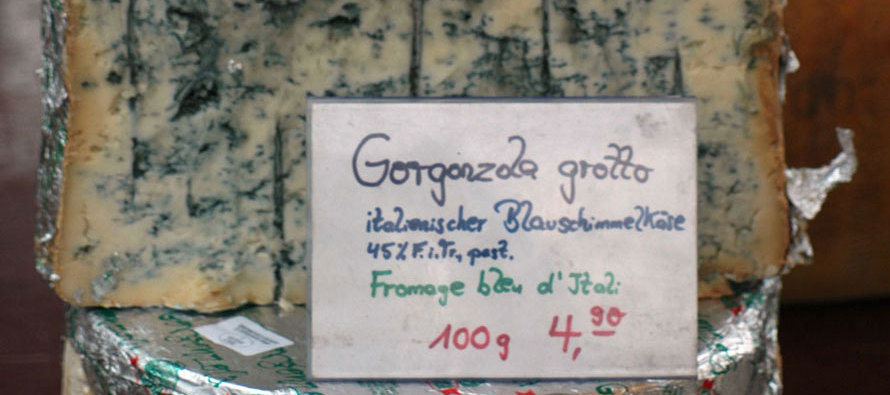 Gorgonzola grotto
italienischer Blauschimmelkäse
45% F.i.Tr., past.
Fromage bleu d'Itali
100g 4,90